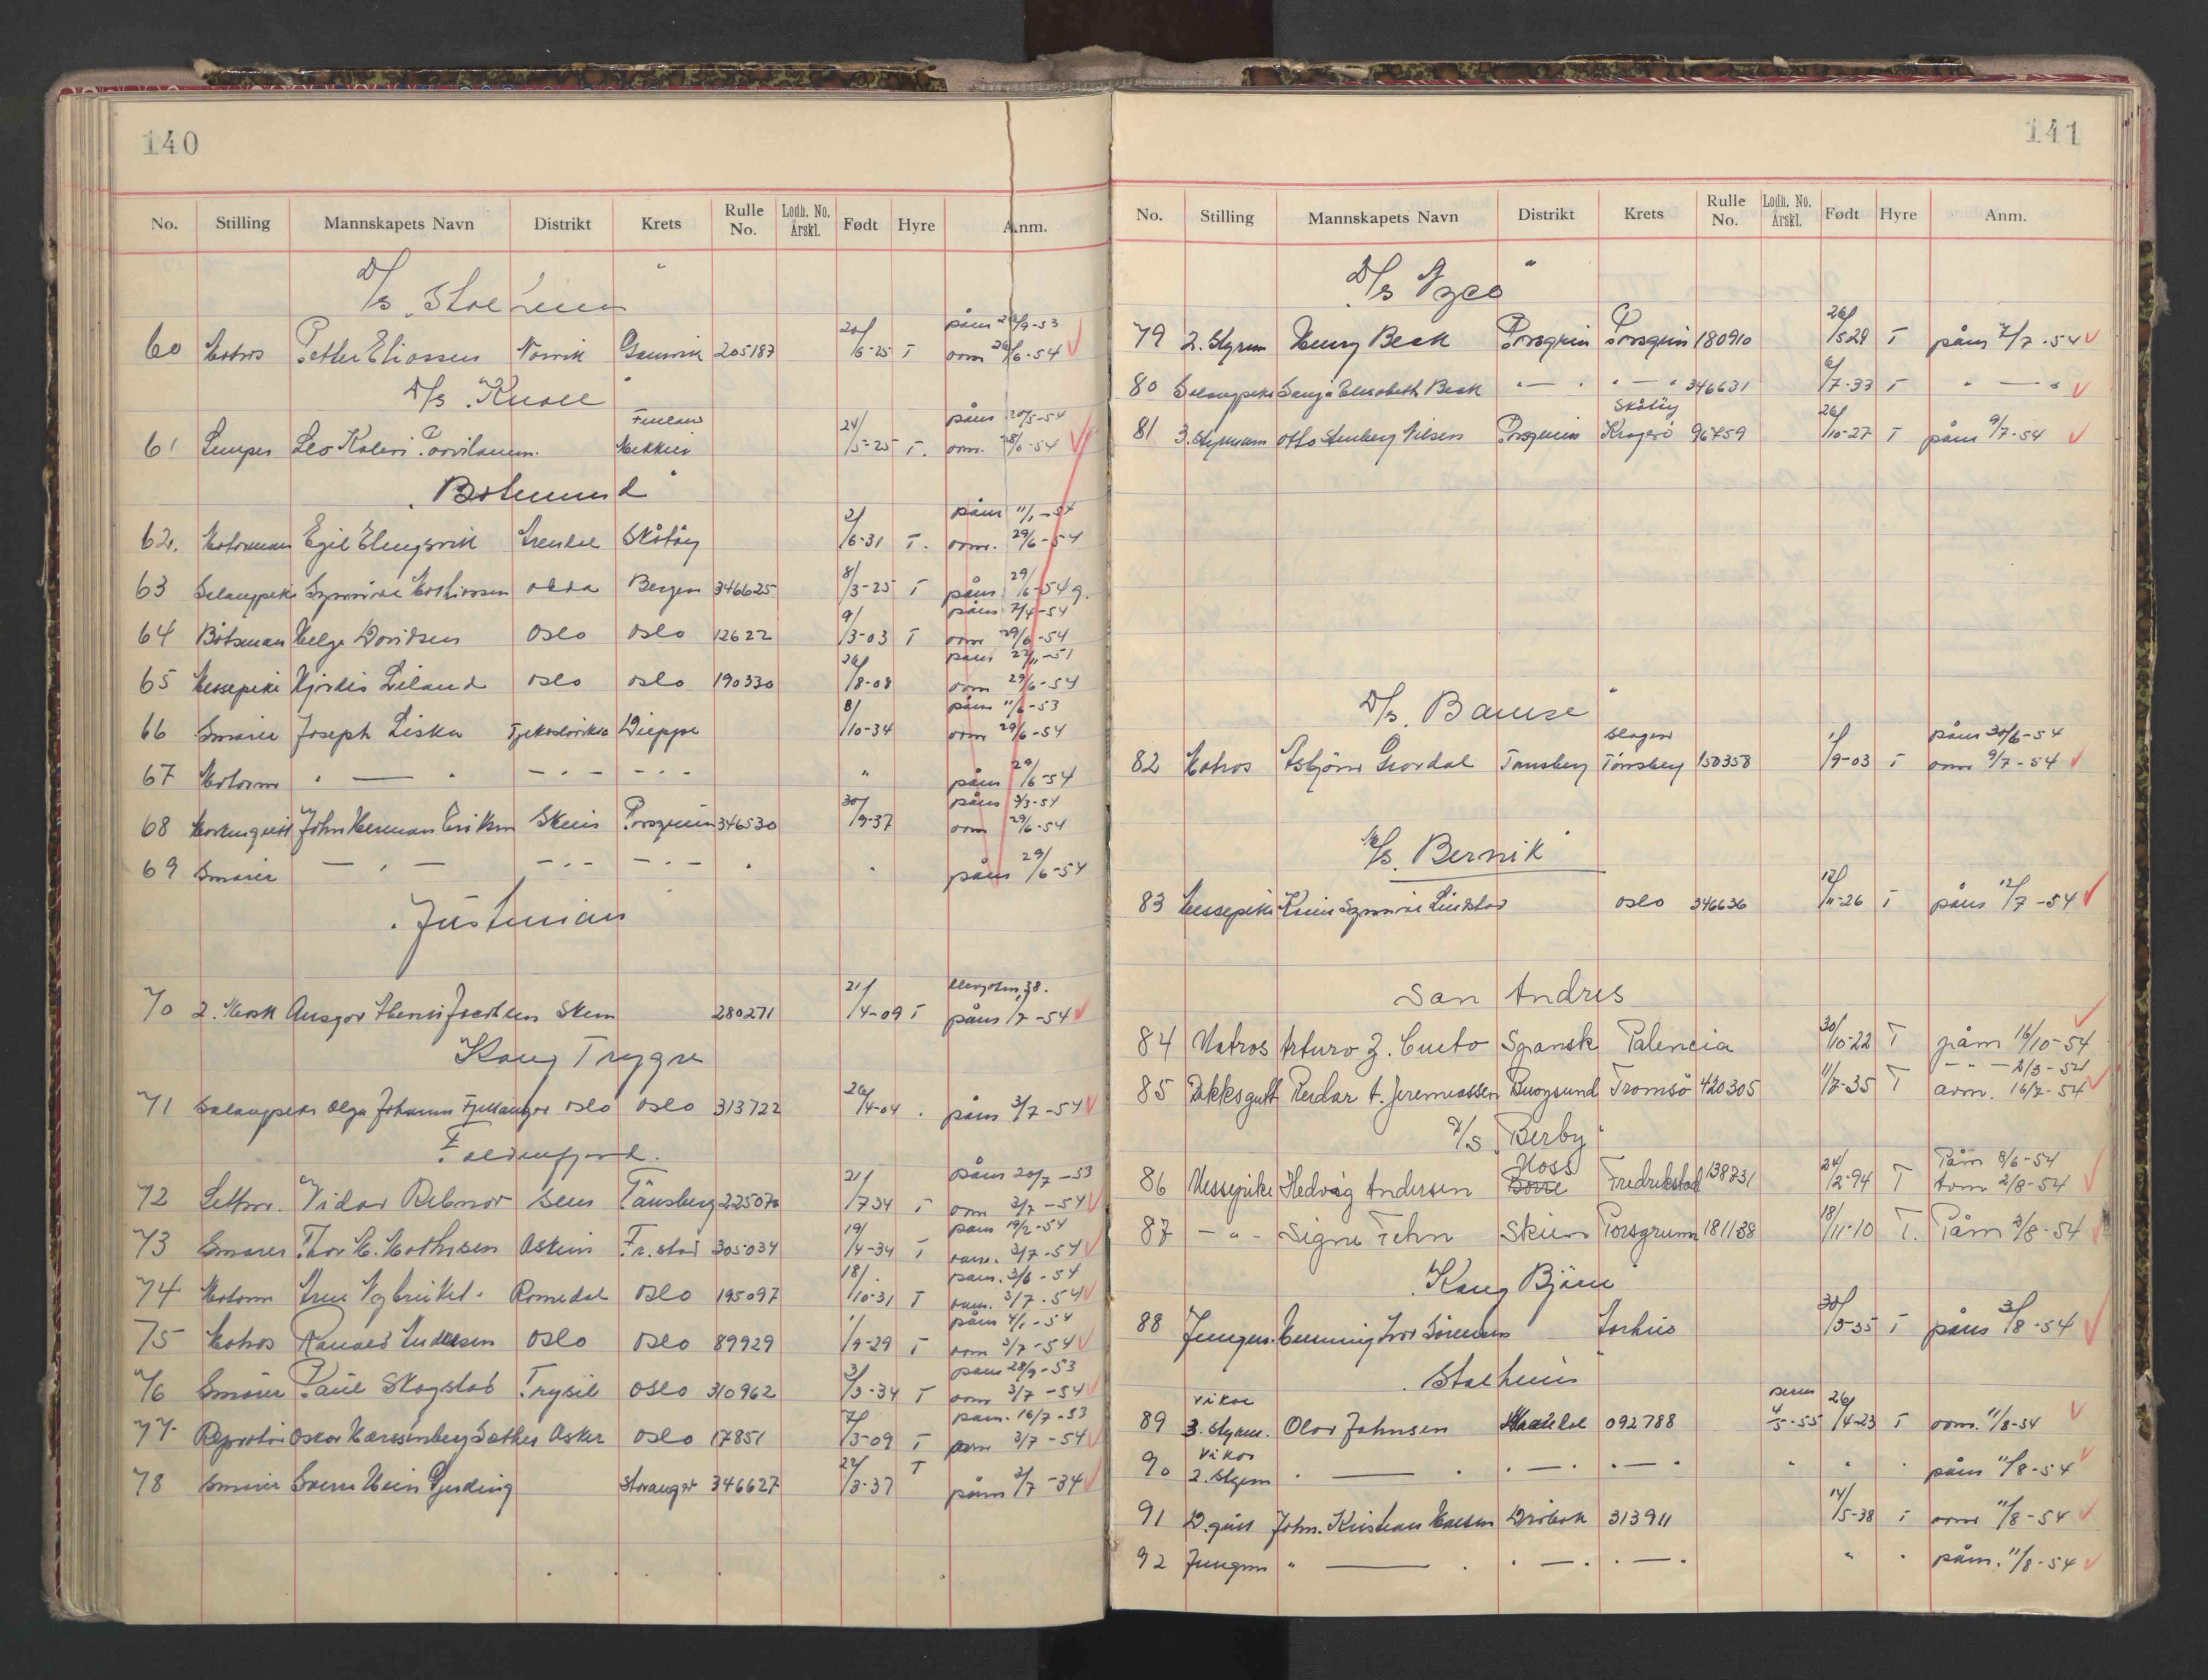 140
No. Stilling Mannskapets Navn Distrikt Krets Rulle No. Lodh. No. Årskl. Født Hyre Anm.
D/s "Stalheim"
60 Matros Petter Eliassen Narvik Gamvik 205187 20/6-25 T påm 26/9-53 avm 26/6-54
D/s "Knoll"
61 Lemper Leo Kalevi Finland 24/5-25 T. påm 20/5-54 avm. 28/6-54
"Bohemund"
62. Motormann Egil Ellingsvik Arendal Skåtøy 2/6-31 T. påm 11/1-54 avm. 29/6-54
63 Salongpike Synnøve Mathiassen Odda Bergen 346625 8/3-25 T påm 29/6-54 g.
64 Båtsman Helge Davidsen Oslo Oslo 12622 9/3-03 T påm 7/4-54 avm 29/6-54
65 Messepike Hjørdis Liland Oslo Oslo 190330 26/8-08 påm 27/11-51 avm 29/6-54
66 Smører Joseph Liska Dieppe 8/10-34 påm 11/6-53 avm 29/6-54
67 Motorm " — " - " - - " - " påm 29/6-54
68 John Herman Eriksen Skien Porsgrunn 346530 30/9-37 påm 3/3-54 avm 29/6-54
69 Smører — " — - " - - " - " " påm 29/6-54
"Justinian"
70 2. Mask Ansgar Skien 280271 21/4-09 T påm 1/7-54
Kong Trygve
71 Salongpike Olga Johanne Fjellanger Oslo Oslo 313722 26/4-04 . påm 3/7-54
Foldenfjord.
72 Lettm. Vidar Sem Tønsberg 225070 21/7 34 T påm 20/7-53 avm 3/7-54
73 Smører Thor M. Mathisen Askim Fr.stad 305034 19/4-34 T påm 19/2-54 avm. 3/7-54
74 Motorm Arne Romedal Oslo 195097 18/10-31 T påm. 3/6-54 avm. 3/7-54
75 Matros Ranald Andresen Oslo Oslo 89929 1/9-29 T påm 4/1-54 avm 3/7-54
76 Smører Paul Skogstad Trysil Oslo 310962 3/3-34 T påm 28/9-53 avm 3/7-54
77 Reparatør Oskar Sæther Asker Oslo 17851 7/3-09 T påm. 16/7-53 avm 3/7-54
78 Smører Sverre Hein Gjerding Stavanger 346627 22/3-37 T påm 3/7-34
141
No. Stilling Mannskapets Navn Distrikt Krets Rulle No. Lodh. No. Årskl. Født Hyre Anm.
D/s "Ygeo"
79 2. Styrm Henry Beck Porsgrunn Porsgrunn 180910 26/5 29 T påm 7/7-54
80 Salongpike Sonja Elisabeth Beck " — " " — " 346631 6/7-33 T " — "
81 3. Styrmann Otto Stenberg Nilsen Porsgrunn Skåtøy Kragerø 96759 26/10-27 T påm 9/7-54
D/s "Bamse"
82 Matros Asbjørn Grovdal Tønsberg Slagen Tønsberg 150358 1/9-03 T påm 30/6-54 avm 9/7-54
M/s "Bernik"
83 Messepike Karin Synnøve Lindstad Oslo 346636 12/11-26 T påm 12/7-54
San Andres
84 Matros Arturo Z. Cueto Spansk Palencia 30/10-22 T påm 16/10-54
85 Dekksgutt Reidar A. Jeremiassen Buøysund Tromsö 420305 11/7-35 T - " - 2/3-54 avm. 16/7-54
T/S "Berby"
86 Messepike Hedvig Andersen Borre Moss Fredrikstad 138731 24/2-94 T Påm 8/6-54 Avm 2/8-54
87 - " - Signe Tehn Skien Porsgrunn 181138 18/11-10 T. Påm 2/8-54
"Kong Bjørn"
88 Jungm. Henning Ivar Sørensen Aarhus 30/5-35 T påm 3/8-54
"Stalheim"
89 vikar 3. Styrm. Olav Johnsen 092788 perm 4/5-55 26/4-23 T avm. 11/8-54
90 vikar 2. Styrm " — " " — " " — " " " " påm 11/8-54
91 D.gutt John. Kristian Hansen Drøbak 313911 14/5-38 T avm 11/8-54
92 Jungm " — " " — " " — " " " påm. 11/8-54